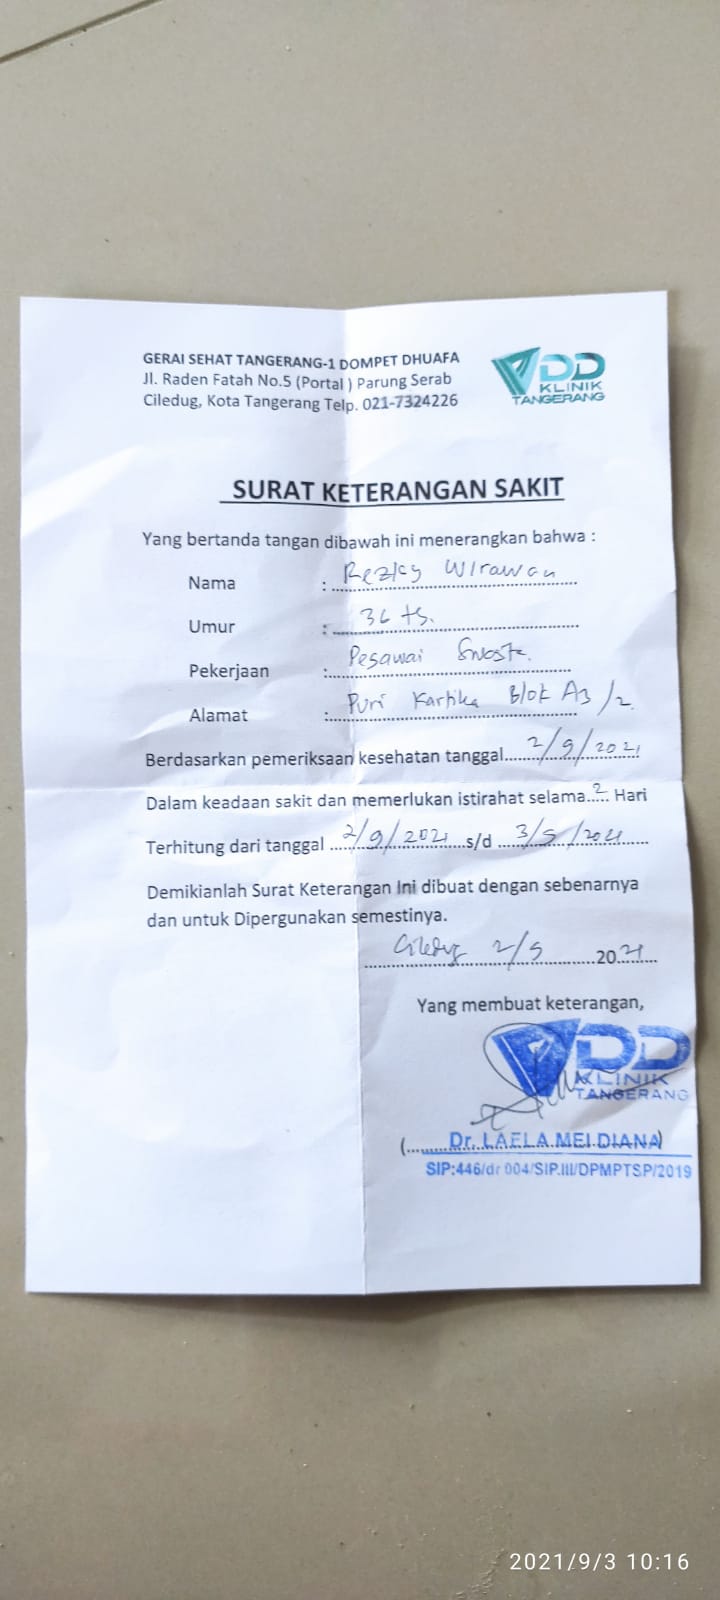 GERAI SEHAT TANGERANG-1 DOMPET DHUAFA
Jl. Raden Fatah No.5 (Portal) Parung Serab
Ciledug, Kota Tangerang Telp. 021-7324226
DD
KLINIK
TANGERANG
SURAT KETERANGAN SAKIT
Yang bertanda tangan dibawah ini menerangkan bahwa :
Nama : Rezky Wirawan
Umur : 36 th.
Pekerjaan : Pegawai Swasta.
Alamat : Puri Kartika Blok A3/2.
Berdasarkan pemeriksaan kesehatan tanggal 2/9/2021
Dalam keadaan sakit dan memerlukan istirahat selama 2 Hari
Terhitung dari tanggal 2/9/2021 s/d 3/9/2021
Demikianlah Surat Keterangan Ini dibuat dengan sebenarnya
dan untuk Dipergunakan semestinya.
Ciledug 2/9 2021
Yang membuat keterangan,
DD
KLINIK
TANGERANG
(Dr. LAELA MEI DIANA)
SIP:446/dr 004/SIP.III/DPMPTSP/2019
2021/9/3 10:16